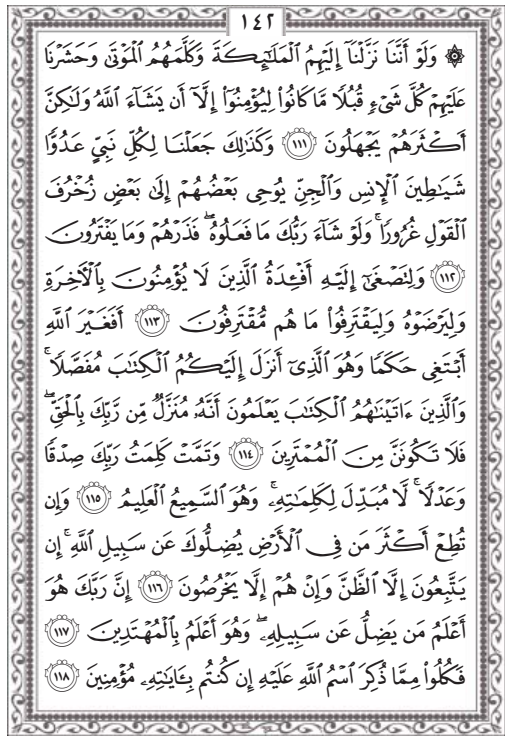 ١٤٢
۞ وَلَوْ أَنَّنَا نَزَّلْنَآ إِلَيْهِمُ ٱلْمَلَٰٓئِكَةَ وَكَلَّمَهُمُ ٱلْمَوْتَىٰ وَحَشَرْنَا
عَلَيْهِمْ كُلَّ شَىْءٍ قُبُلًا مَّا كَانُوا۟ لِيُؤْمِنُوٓا۟ إِلَّآ أَن يَشَآءَ ٱللَّهُ وَلَٰكِنَّ
أَكْثَرَهُمْ يَجْهَلُونَ ١١١ وَكَذَٰلِكَ جَعَلْنَا لِكُلِّ نَبِىٍّ عَدُوًّا
شَيَٰطِينَ ٱلْإِنسِ وَٱلْجِنِّ يُوحِى بَعْضُهُمْ إِلَىٰ بَعْضٍ زُخْرُفَ
ٱلْقَوْلِ غُرُورًا ۚ وَلَوْ شَآءَ رَبُّكَ مَا فَعَلُوهُ ۖ فَذَرْهُمْ وَمَا يَفْتَرُونَ
١١٢ وَلِتَصْغَىٰٓ إِلَيْهِ أَفْـِٔدَةُ ٱلَّذِينَ لَا يُؤْمِنُونَ بِٱلْءَاخِرَةِ
وَلِيَرْضَوْهُ وَلِيَقْتَرِفُوا۟ مَا هُم مُّقْتَرِفُونَ ١١٣ أَفَغَيْرَ ٱللَّهِ
أَبْتَغِى حَكَمًا وَهُوَ ٱلَّذِىٓ أَنزَلَ إِلَيْكُمُ ٱلْكِتَٰبَ مُفَصَّلًا ۚ
وَٱلَّذِينَ ءَاتَيْنَٰهُمُ ٱلْكِتَٰبَ يَعْلَمُونَ أَنَّهُۥ مُنَزَّلٌ مِّن رَّبِّكَ بِٱلْحَقِّ ۖ
فَلَا تَكُونَنَّ مِنَ ٱلْمُمْتَرِينَ ١١٤ وَتَمَّتْ كَلِمَتُ رَبِّكَ صِدْقًا
وَعَدْلًا ۚ لَّا مُبَدِّلَ لِكَلِمَٰتِهِۦ ۚ وَهُوَ ٱلسَّمِيعُ ٱلْعَلِيمُ ١١٥ وَإِن
تُطِعْ أَكْثَرَ مَن فِى ٱلْأَرْضِ يُضِلُّوكَ عَن سَبِيلِ ٱللَّهِ ۚ إِن
يَتَّبِعُونَ إِلَّا ٱلظَّنَّ وَإِنْ هُمْ إِلَّا يَخْرُصُونَ ١١٦ إِنَّ رَبَّكَ هُوَ
أَعْلَمُ مَن يَضِلُّ عَن سَبِيلِهِۦ ۖ وَهُوَ أَعْلَمُ بِٱلْمُهْتَدِينَ ١١٧
فَكُلُوا۟ مِمَّا ذُكِرَ ٱسْمُ ٱللَّهِ عَلَيْهِ إِن كُنتُم بِـَٔايَٰتِهِۦ مُؤْمِنِينَ ١١٨